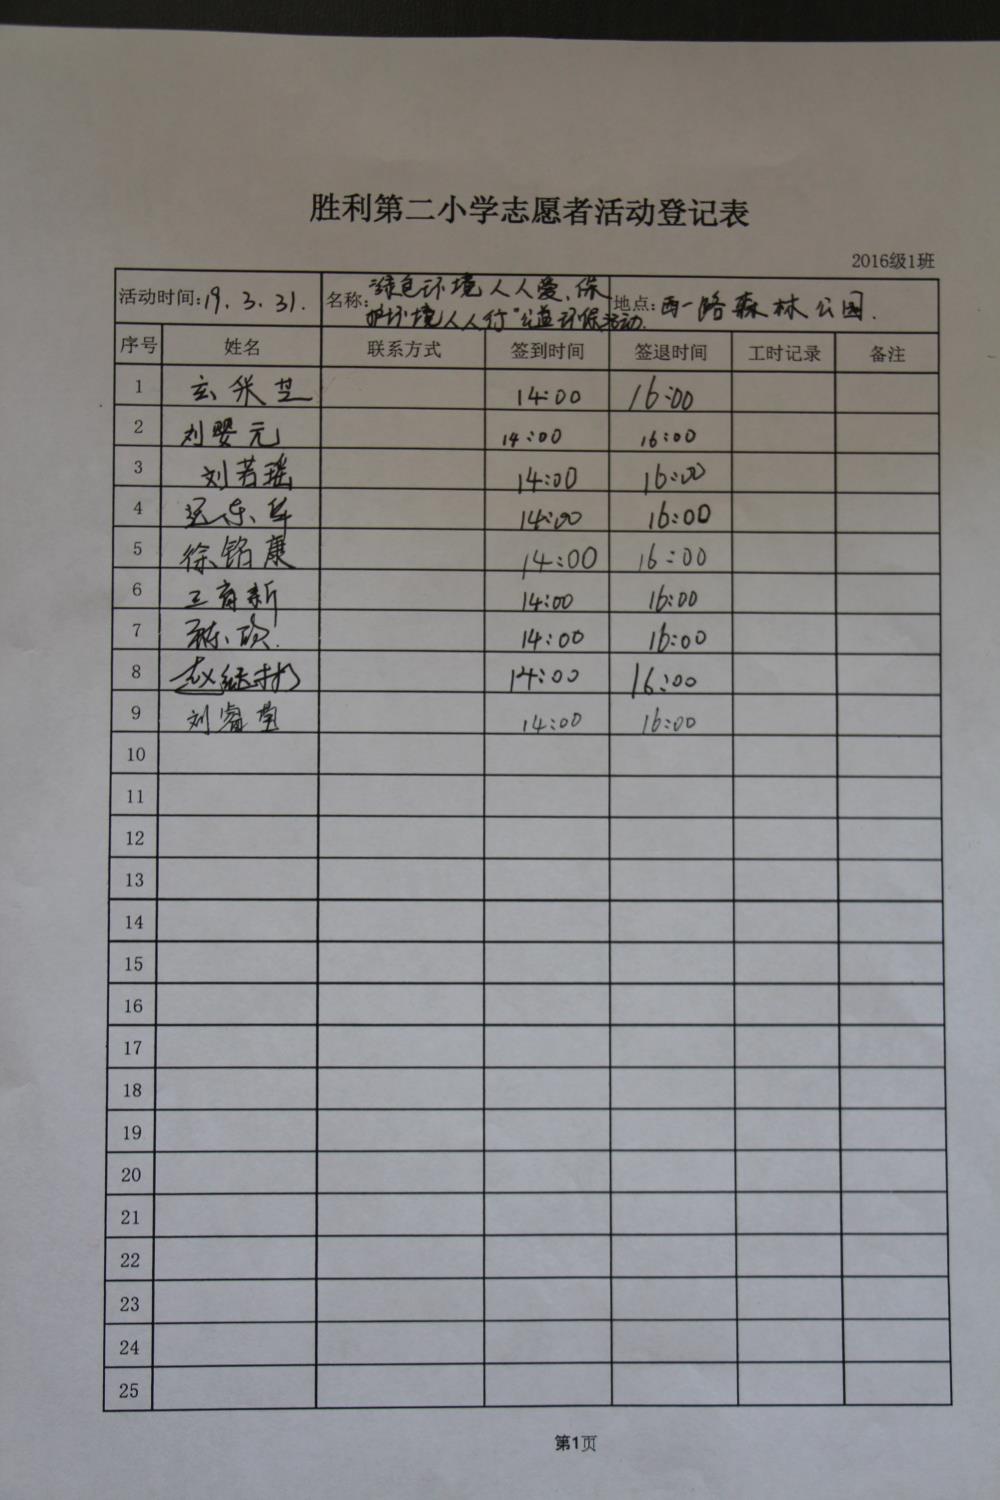 胜利第二小学志愿者活动登记表
2016级1班
活动时间:19.3.31. 名称:"绿色环境人人爱、保护环境人人行"公益环保活动. 地点:西一路森林公园.
序号 姓名 联系方式 签到时间 签退时间 工时记录 备注
1 14:00 16:00
2 刘婴元 14:00 16:00
3 刘若瑶 14:00 16:00
4 14:00 16:00
5 徐铭康 14:00 16:00
6 14:00 16:00
7 14:00 16:00
8 14:00 16:00
9 刘睿莹 14:00 16:00
10
11
12
13
14
15
16
17
18
19
20
21
22
23
24
25
第1页